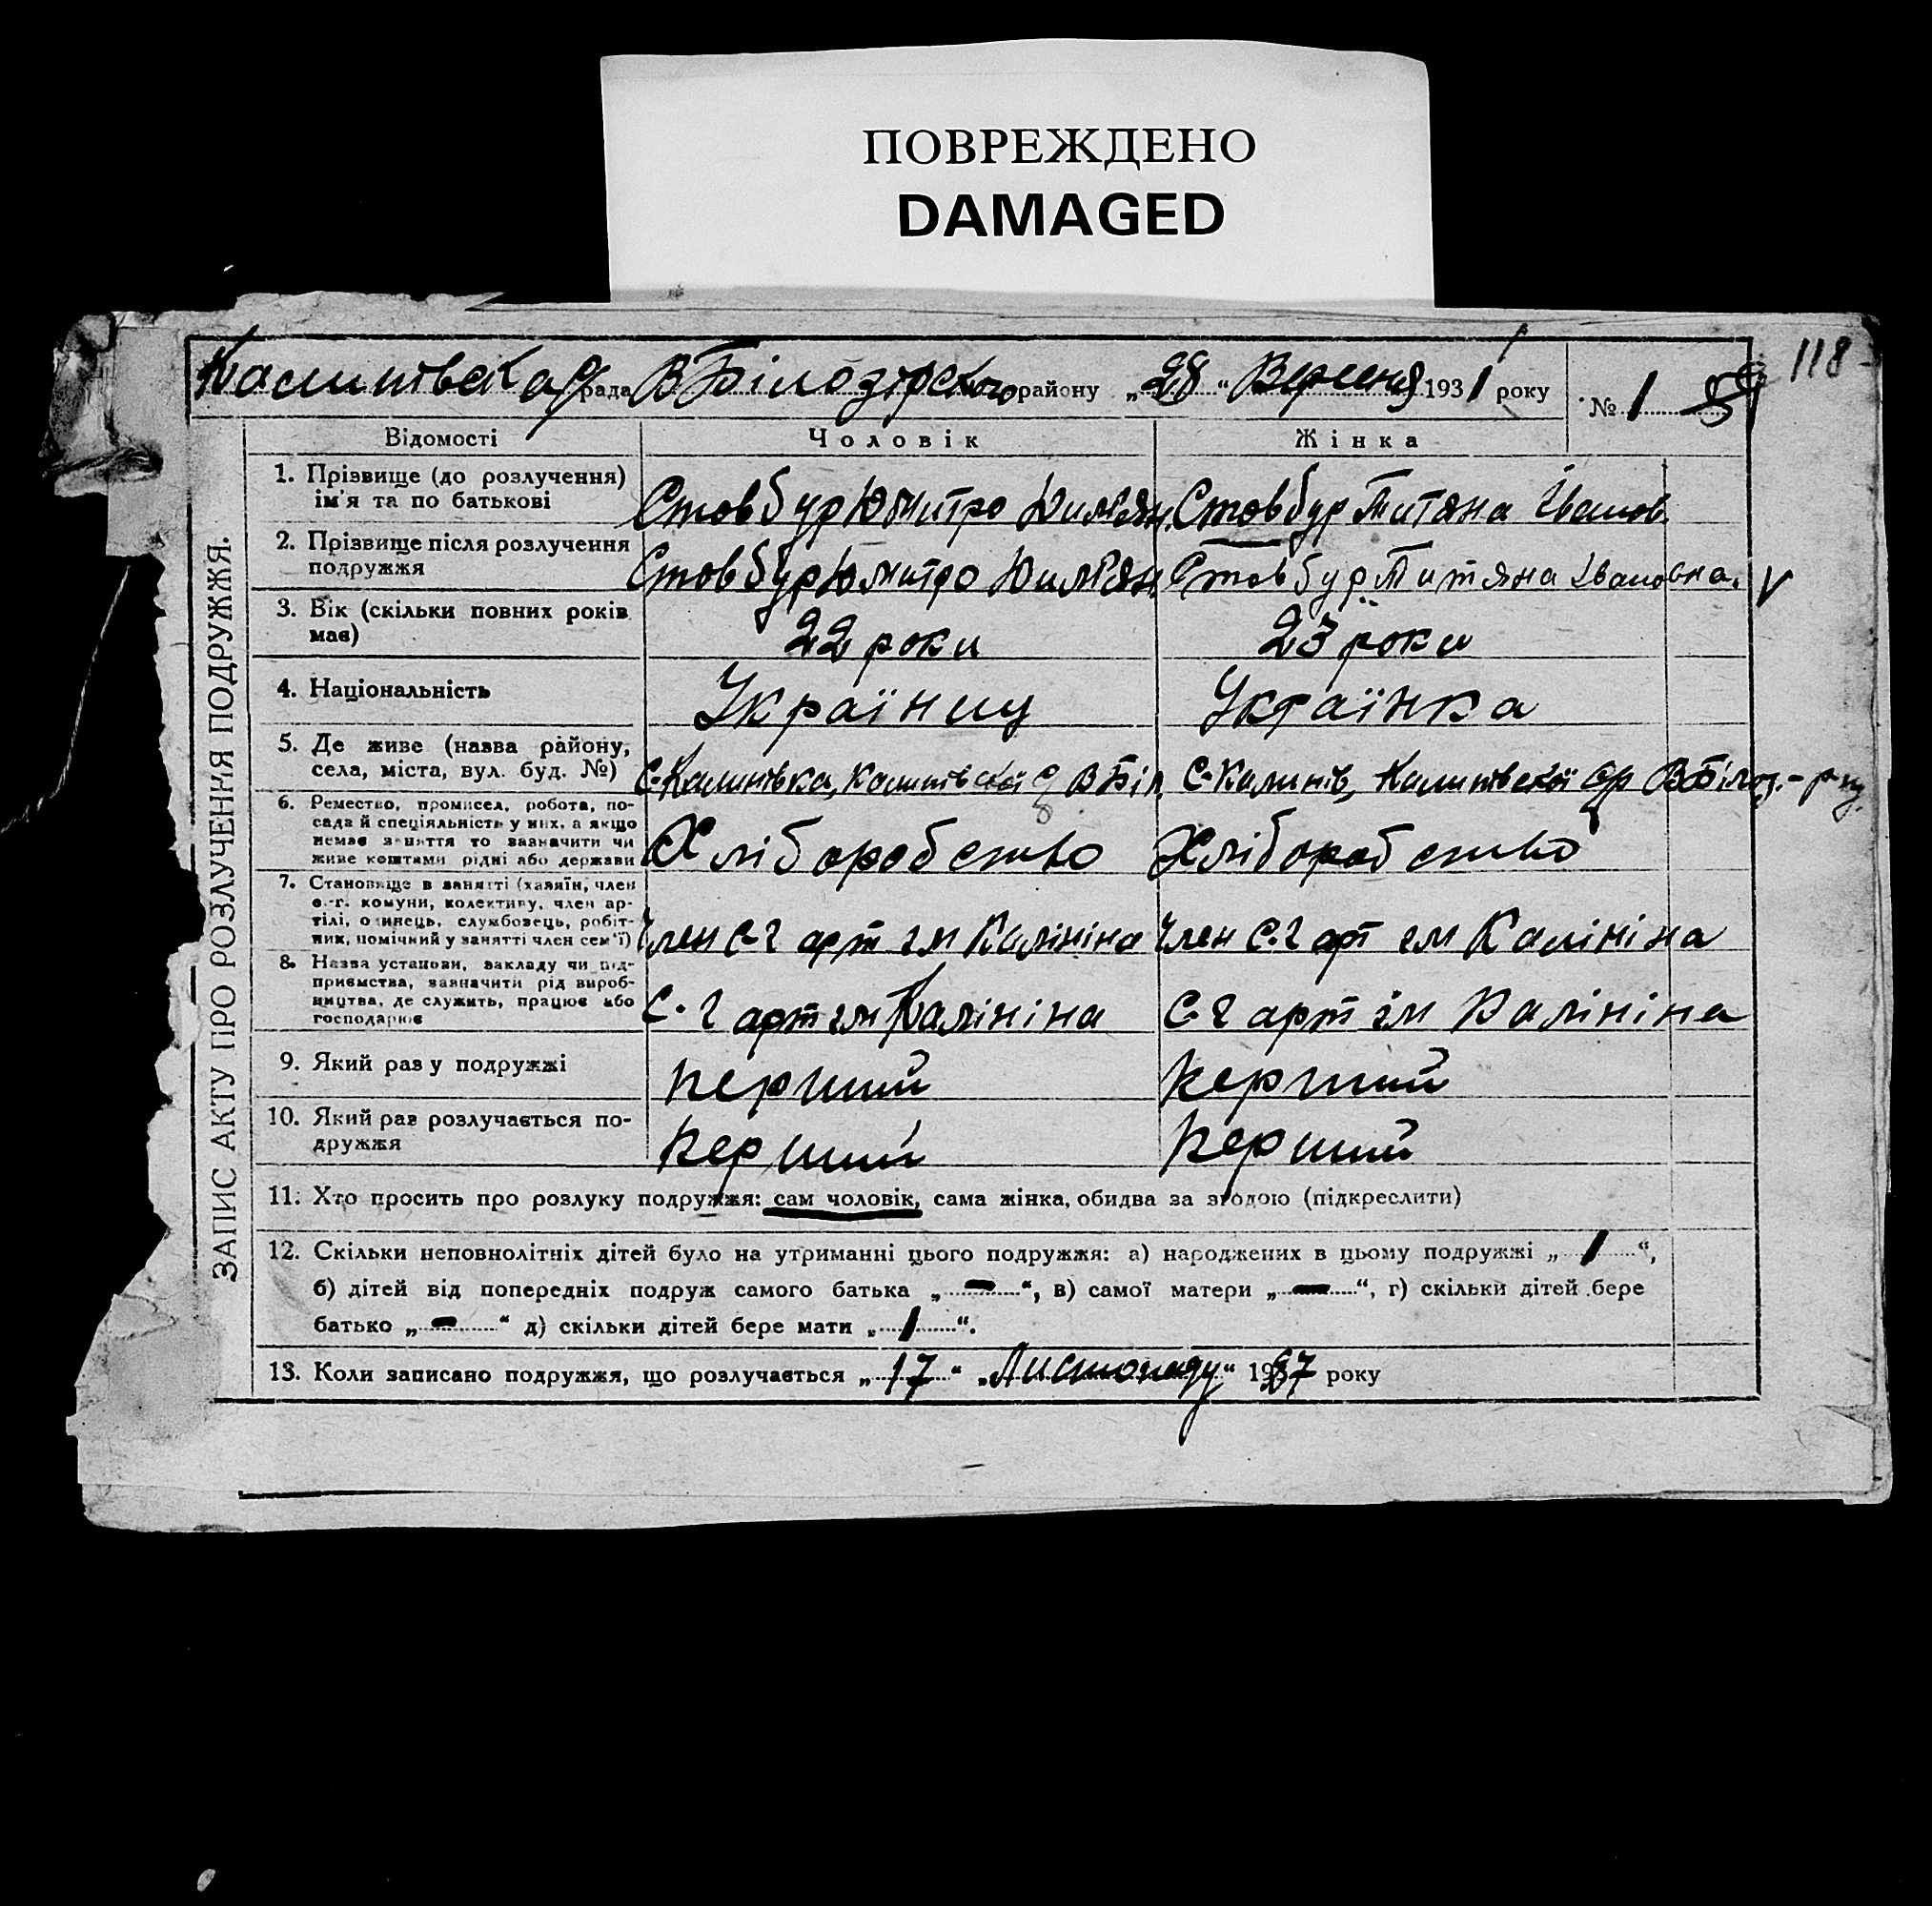 ПОВРЕЖДЕНО
DAMAGED
118
Калинівська с/рада В Білозірского району „28“ Вересня 1931 року № 1
ЗАПИС АКТУ ПРО РОЗЛУЧЕННЯ ПОДРУЖЖЯ.
Відомості Чоловік Жінка
1. Прізвище (до розлучення)
ім'я та по батькові
Стовбур Юмитро Стовбур Титяна Іванов.
2. Прізвище після розлучення
подружжя
Стовбур Юмитро Стовбур Титяна Івановна. V
3. Вік (скільки повних років
має)
22 роки 23 роки
4. Національність
Українец Українка
5. Де живе (назва району,
села, міста, вул. буд. №)
С. Калинівка, Калинівскої В Біл. С. Калинів, Калинівскої ср В Білоз.-р ну.
6. Ремество, промисел, робота, по-
сада й спеціяльність у них, а якщо
немає заняття то зазначити чи
живе коштами рідні або держави
Хліборобство Хліборобство
7. Становище в занятті (хазяїн, член
с.-г. комуни, колективу, член ар-
тілі, одинець, службовець, робіт-
ник, помічний у занятті член сем'ї)
Член с-г арт ім Калініна Член с.г арт ім Калініна
8. Назва установи, закладу чи під-
приємства, зазначити рід вироб-
ництва, де служить, працює або
господарює
С.г арт ім Калініна С.г арт ім Калініна
9. Який раз у подружжі
перший перший
10. Який раз розлучається по-
дружжя
перший перший
11. Хто просить про розлуку подружжя: сам чоловік, сама жінка, обидва за згодою (підкреслити)
12. Скільки неповнолітніх дітей було на утриманні цього подружжя: а) народжених в цьому подружжі „ 1 “,
б) дітей від попередніх подруж самого батька „ – “, в) самої матери „ – “, г) скільки дітей бере
батько „ – “ д) скільки дітей бере мати „ 1 “.
13. Коли записано подружжя, що розлучається „ 17 “ „Листопаду“ 1927 року